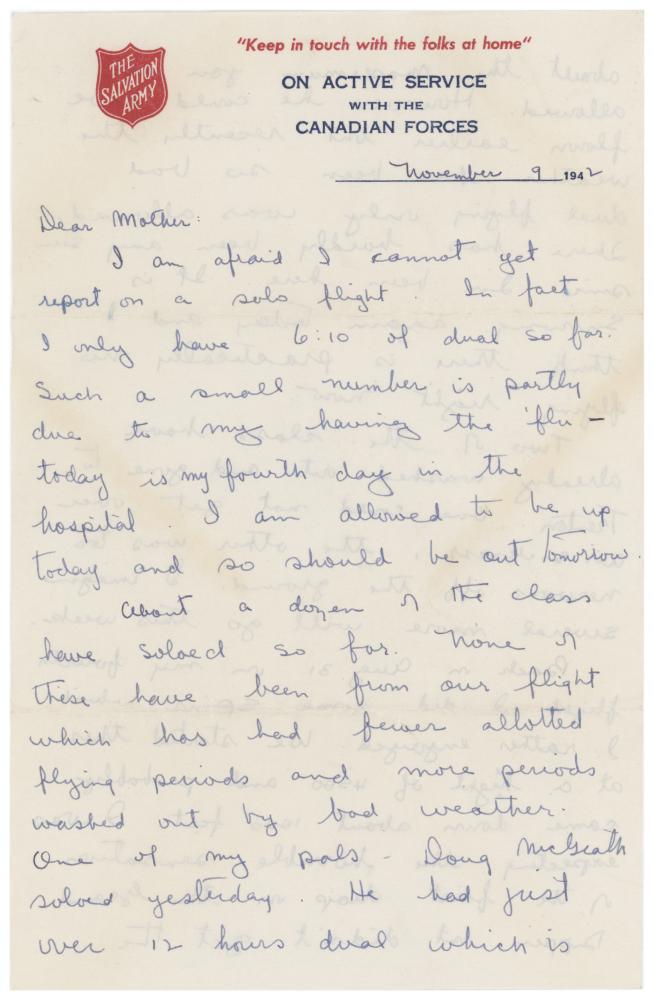 "Keep in touch with the folks at home"
THE
SALVATION
ARMY
ON ACTIVE SERVICE
WITH THE
CANADIAN FORCES
November 9 1942
Dear Mother:
I am afraid I cannot yet
report on a solo flight. In fact
I only have 6:10 of dual so far.
Such a small number is partly
due to my having the 'flu —
today is my fourth day in the
hospital. I am allowed to be up
today and so should be out tomorrow.
About a dozen of the class
have soloed so far. None of
these have been from our flight
which has had fewer allotted
flying periods and more periods
washed out by bad weather.
One of my pals - Doug
soloed yesterday. He had just
over 12 hours dual which is